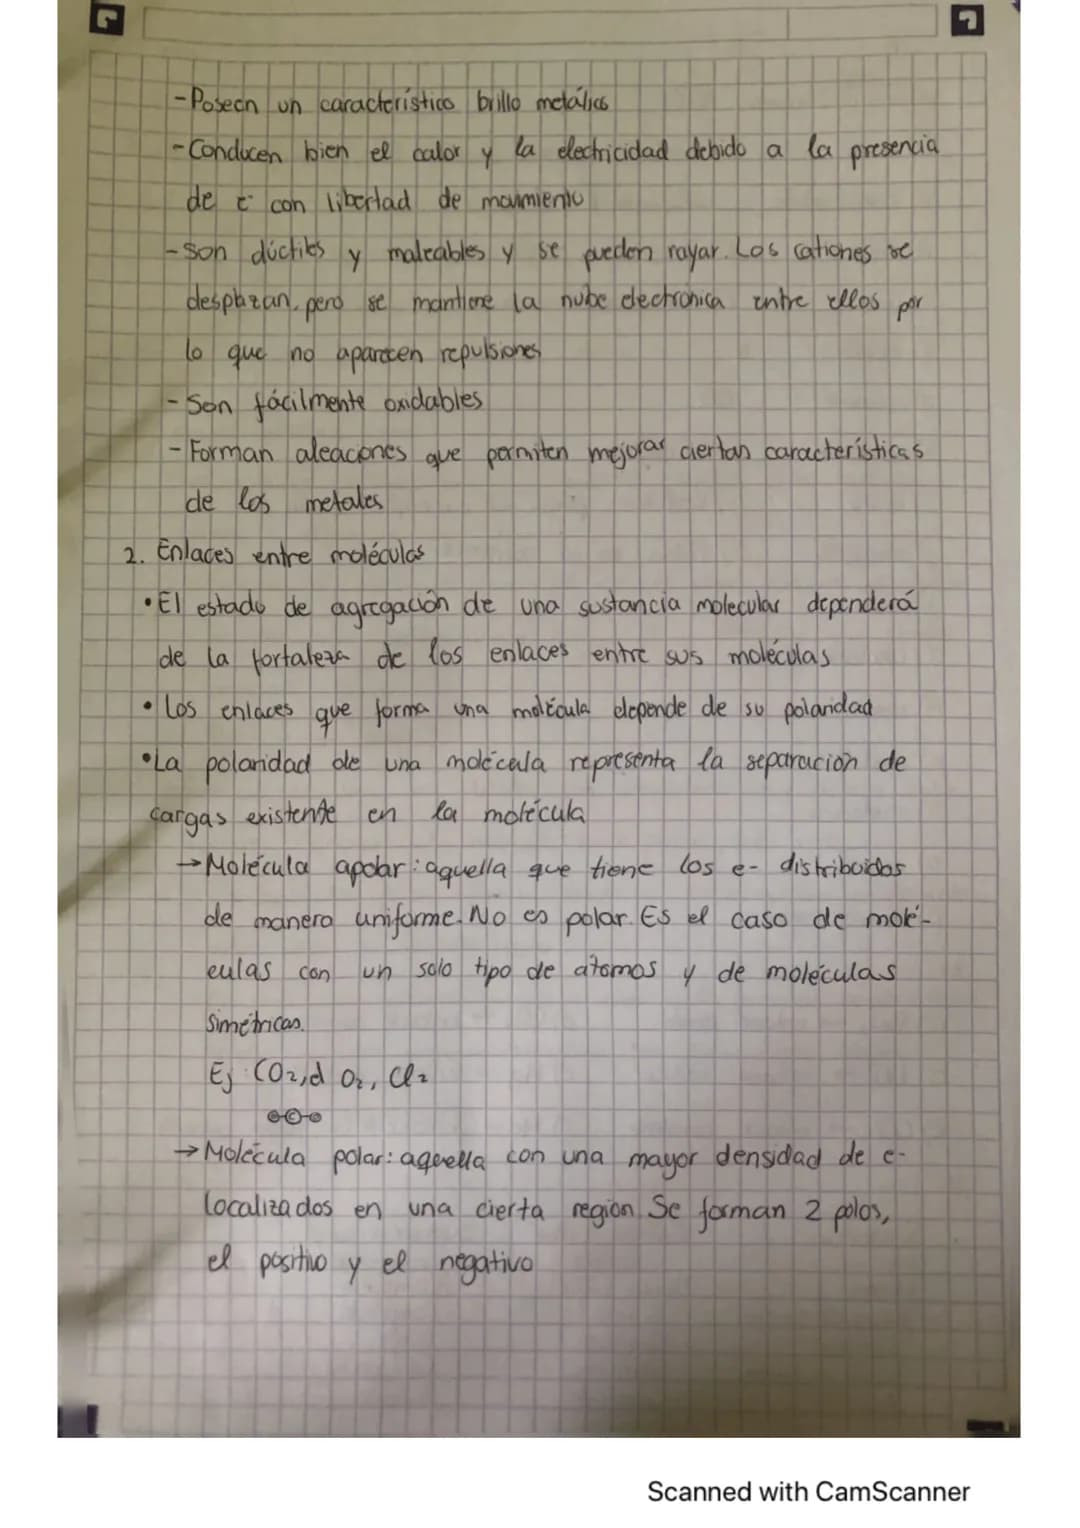 -Poseen un característico brillo metálico
-Conducen bien el calor y la electricidad debido a la presencia
de e⁻ con libertad de movimiento
-Son dúctiles y maleables y se pueden rayar. Los cationes se
desplazan, pero se mantiene la nube electrónica entre ellos por
lo que no aparecen repulsiones
-Son fácilmente oxidables
-Forman aleaciones que permiten mejorar ciertan características
de los metales
2. Enlaces entre moléculas
•El estado de agregación de una sustancia molecular dependerá
de la fortaleza de los enlaces entre sus moléculas
•Los enlaces que forma una molécula depende de su polaridad
•La polaridad de una molécula representa la separación de
cargas existente en la molécula
→Molécula apolar: aquella que tiene los e- distribuidos
de manera uniforme. No es polar. Es el caso de molé-
culas con un solo tipo de átomos y de moléculas
simétricas.
Ej CO₂, O₂, Cl₂
→Molécula polar: aquella con una mayor densidad de e-
localizados en una cierta región. Se forman 2 polos,
el positivo y el negativo
Scanned with CamScanner